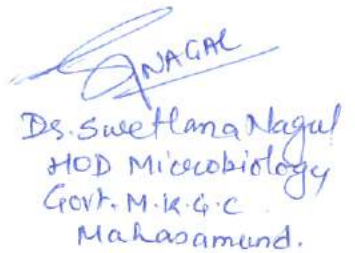 SNAGAL
Ds. Swetlana Nagal
HOD Microbiology
Govt. M.K.G.C
Mahasamund.